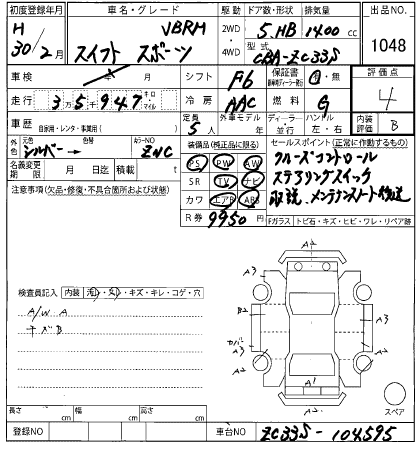 初度登録年月 車名・グレード 駆動 ドア数・形状 排気量 出品NO.
H 30/2月 スイフト スポーツ VBRH 2WD 4WD 5.HB 1400 cc 1048
型式 CBA-ZC33S
車検 年 月 シフト F6 保証書 有・無 評価点 4
走行 3万5千947 キロ マイル 冷房 AAC 燃料 G
車歴 自家用・レンタ・事業用( ) 定員 5人 外車モデル 年 ディーラー 並行 ハンドル 左・右 内装評価 B
外色 元色 シルバー → 色替 カラーNO ZNC
装備品(純正品に限る) セールスポイント(正常に作動するもの)
PS PW AW クルーズコントロール
名義変更期限 月 日迄 積載 t SR TV ナビ ステアリングスイッチ
注意事項(欠品・修復・不具合箇所および状態) カワ エアB ABS 取説、メンテナンスノート後送
R券 9950円 Fガラス トビ石・キズ・ヒビ・ワレ・リペア跡
検査員記入 内装 汚・スレ・キズ・キレ・コゲ・穴
A/W A
キズB
A2
A3
B2
A3
カバ
A3
A1
A2
スペア
長さ cm 幅 cm 高さ cm
登録NO 車台NO ZC33S-104595